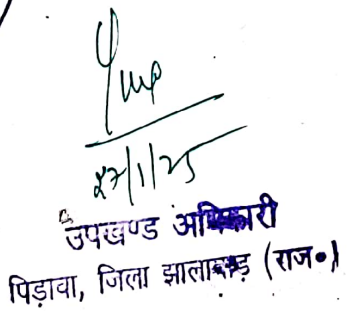 27/1/25
उपखण्ड अधिकारी
पिड़ावा, जिला झालावाड़ (राज०)